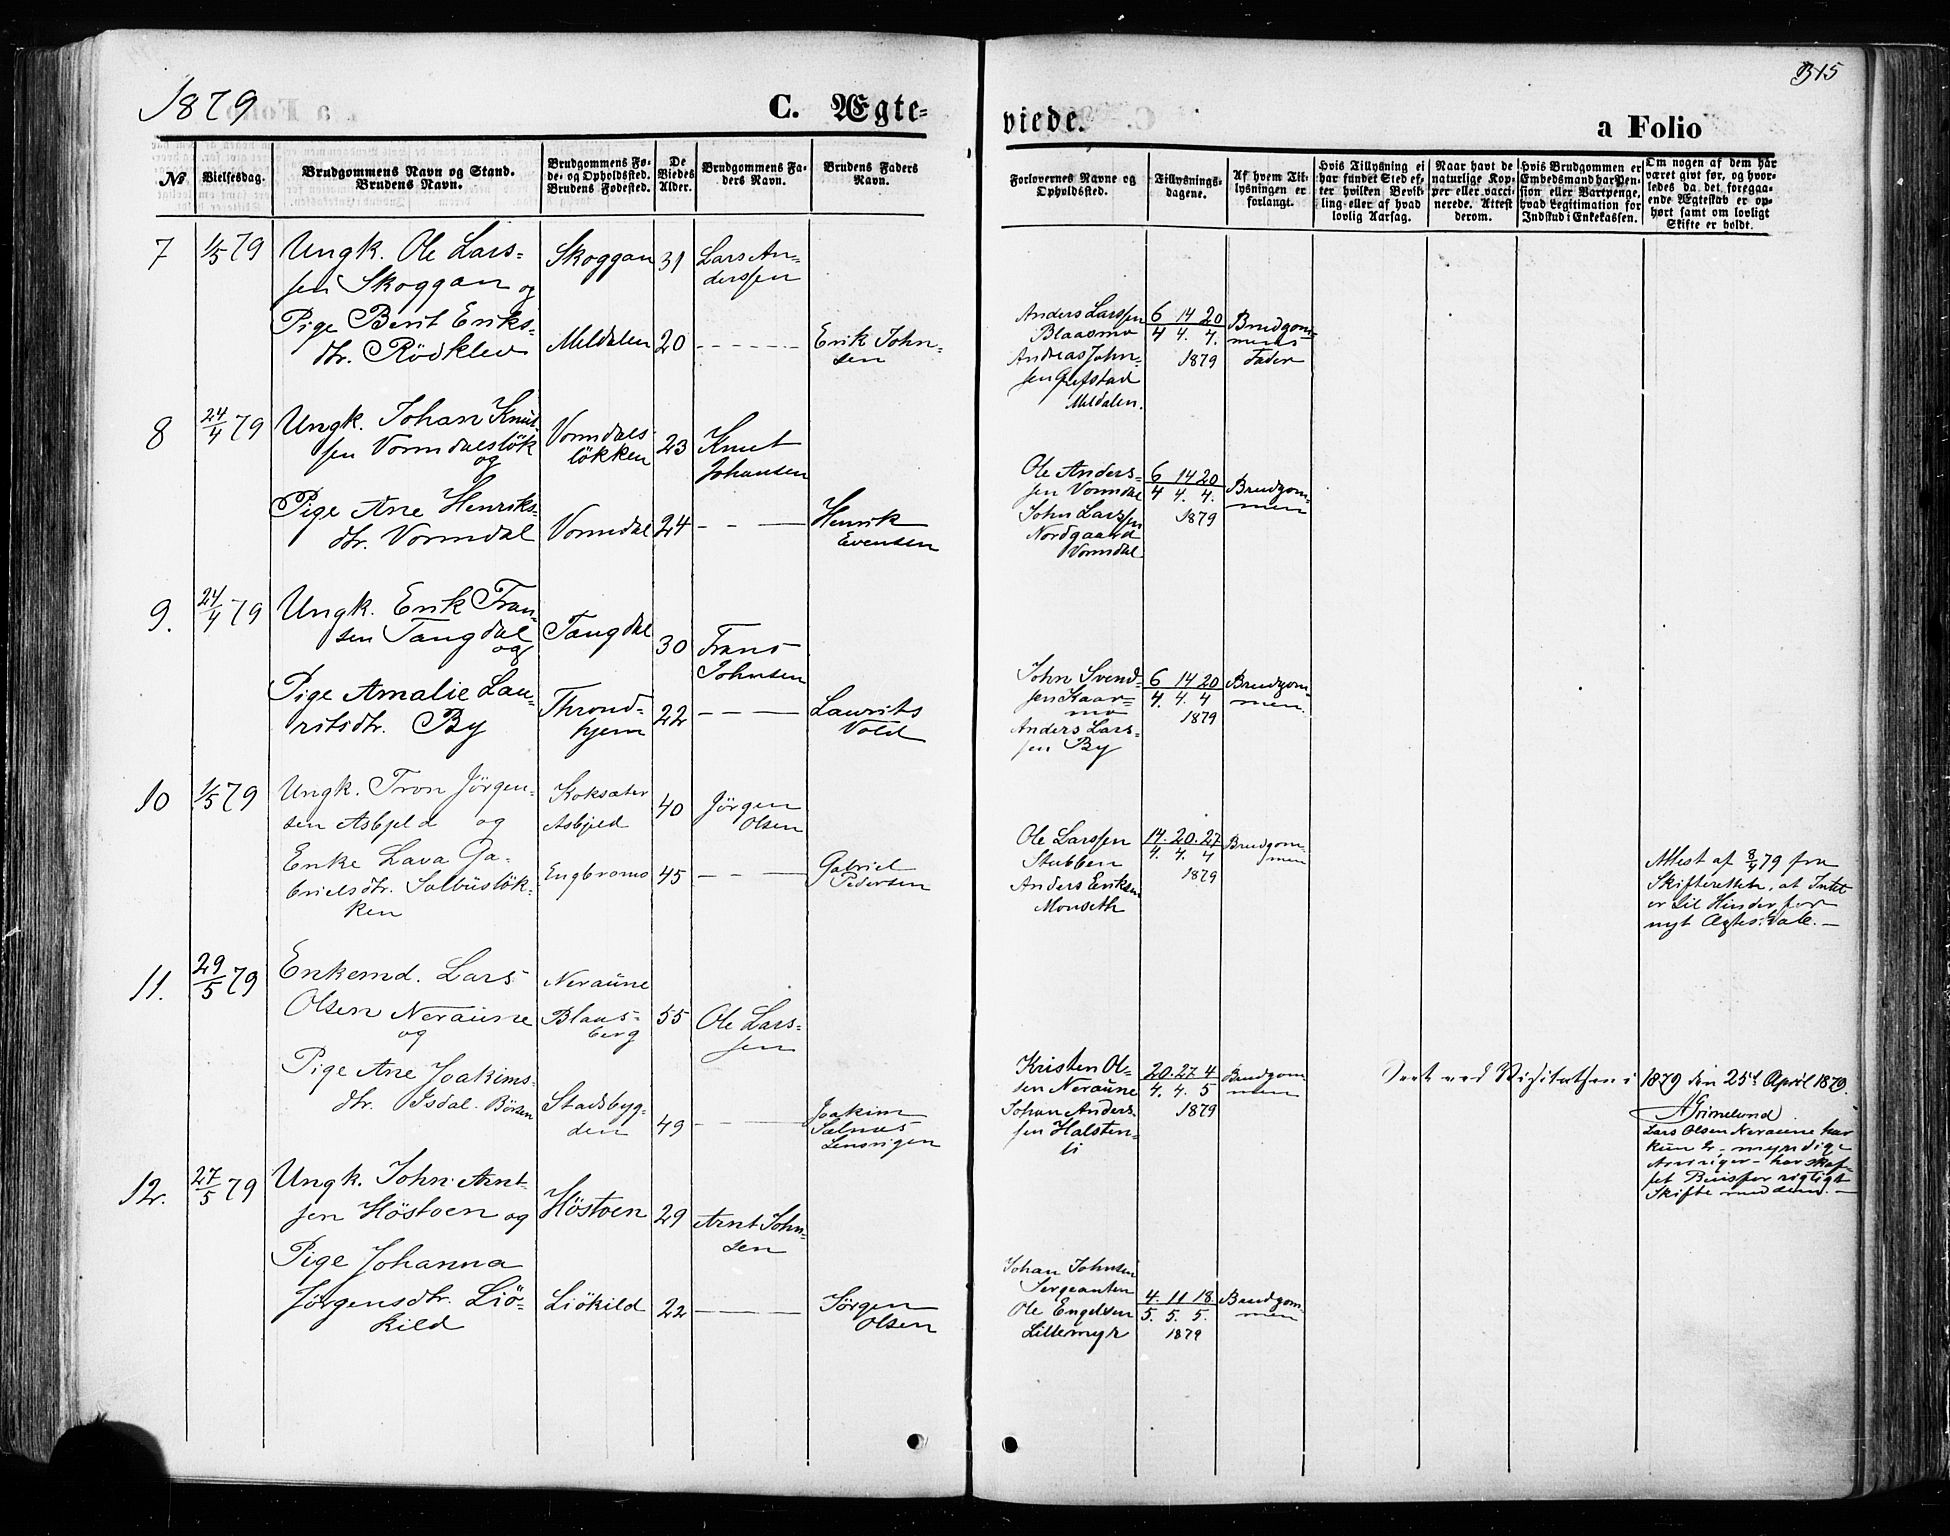 1879
C. Ægte-
viede.
a Folio
315
№
Vielsesdag.
Brudgommens Navn og Stand.
Brudens Navn.
Brudgommens Fø-
de- og Opholdssted.
Brudens Fødested.
De
Viedes
Alder.
Brudgommens Fa-
ders Navn.
Brudens Faders
Navn.
Forlovernes Navne og
Opholdssted.
Tillysnings-
dagene.
Af hvem Til-
lysningen er
forlangt.
Hvis Tillysning ei
har fundet Sted ef-
ter hvilken Bevil-
ling eller af hvad
lovlig Aarsag.
Naar havt de
naturlige Kop-
per eller vacci-
nerede. Attest
derom.
Hvis Brudgommen er
Embedsmand har Pen-
sion eller Vartpenge,
hvad Legitimation for
Indskud i Enkekassen.
Om nogen af dem har
været givt før, og hvor-
ledes da det foregaa-
ende Ægteskab er op-
hørt samt om lovligt
Skifte er holdt.
7
1/5 79
Ungk. Ole Lars-
sen Skoggan og
Pige Berit Eriks-
dtr. Rödklev
Skoggan
Meldalen
31
20
Lars An-
derssen
Erik John-
sen
Anders Larssen
Blaasmo
Andreas John-
sen Grefstad
Meldalen.
6 14 20
4 4. 4.
1879
Brudgom-
mens
Fader
8
24/4 79
Ungk. Johan Knut-
sen Vormdalslök
og
Pige Ane Henriks-
dtr. Vormdal
Vormdals-
lökken
Vormdal
23
24
Knut
Johansen
Henrik
Evensen
Ole Anders-
sen Vormdal
John Larssen
Nordgaard
Vormdal
6 14 20
4 4. 4.
1879
Brudgom-
men
9.
24/4 79
Ungk. Erik Fran-
sen Tangdal
og
Pige Amalie Lau-
ritsdtr. By
Tangdal
Thrond-
hjem
30
22
Frans
Johnsen
Laurits
Vold
John Svend-
sen Kaar-
mo
Anders Lars-
sen By
6 14 20
4. 4. 4
1879
Brudgom-
men.
10
1/5 79
Ungk. Tron Jörgen-
sen Asbjeld og
Enke Lava Ga-
brielsdtr. Solbuslök-
ken
Koksæter
Asbjeld
Engbromo
40
45
Jörgen
Olsen
Gabriel
Pedersen
Ole Larssen
Stubben
Anders Eriksen
Monseth
14. 20. 27
4. 4. 4
1879
Brudgom-
men
Attest af 8/4 79 fra
Skifteretten, at Intet
er til Hinder for
nyt Ægtes:kab. —
11.
29/5 79
Enkemd. Lars
Olsen Neraune
og
Pige Ane Joakims-
dtr. Isdal. Börsen
Neraune
Blaas-
berg
Stadsbyg-
den
55
49
Ole Lars-
sen
Joakim
Salnes
Lensvigen
Kristen Ol-
sen Neraune
Johan Anders-
sen Halsten-
li
20. 27. 4
4. 4. 5
1879
Brudgom-
men
Seet ved Visitathen i 1879 den 25de April 1879.
A Grimelund
Lars Olsen Neraune har
kun 2 — myndige
Arvinger — har skaf-
fet Bevis for rigtigt
Skifte med dem. —
12.
27/5 79
Ungk. John Arnt-
sen Höstoen og
Pige Johanna
Jörgensdtr. Liö-
kild
Höstoen
Liökild
29
22
Arnt John-
sen
Jörgen
Olsen
Johan Johnsen
Sergeanten
Ole Engelsen
Lillemyr
4. 11 18.
5. 5. 5.
1879
Brudgom-
men